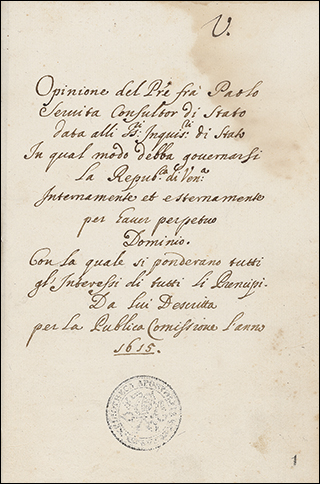 V.
Opinione del Prẽ frà Paolo
Servita Consultor di Stato
data alli Ss.ri Inquis.ri di Stato
In qual modo debba governarsi
la Repub.ca di Ven.a
Internamente et esternamente
per haver perpetuo
Dominio.
Con la quale si ponderano tutti
gl'Interessi di tutti li Prencipi.
Da lui Descritta
per la Publica Comissione l'anno
1615.
BIBLIOTHECA APOSTOLICA
1